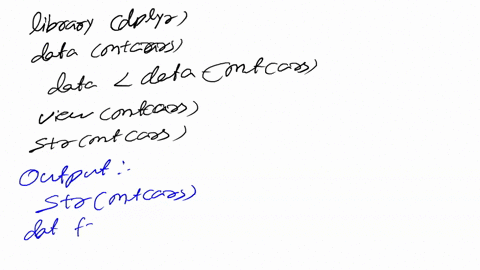 library (dplyr)
data (mtcars)
data < data mtcars)
view (mtcars)
str (mtcars)
Output :-
str (mtcars)
dat f-